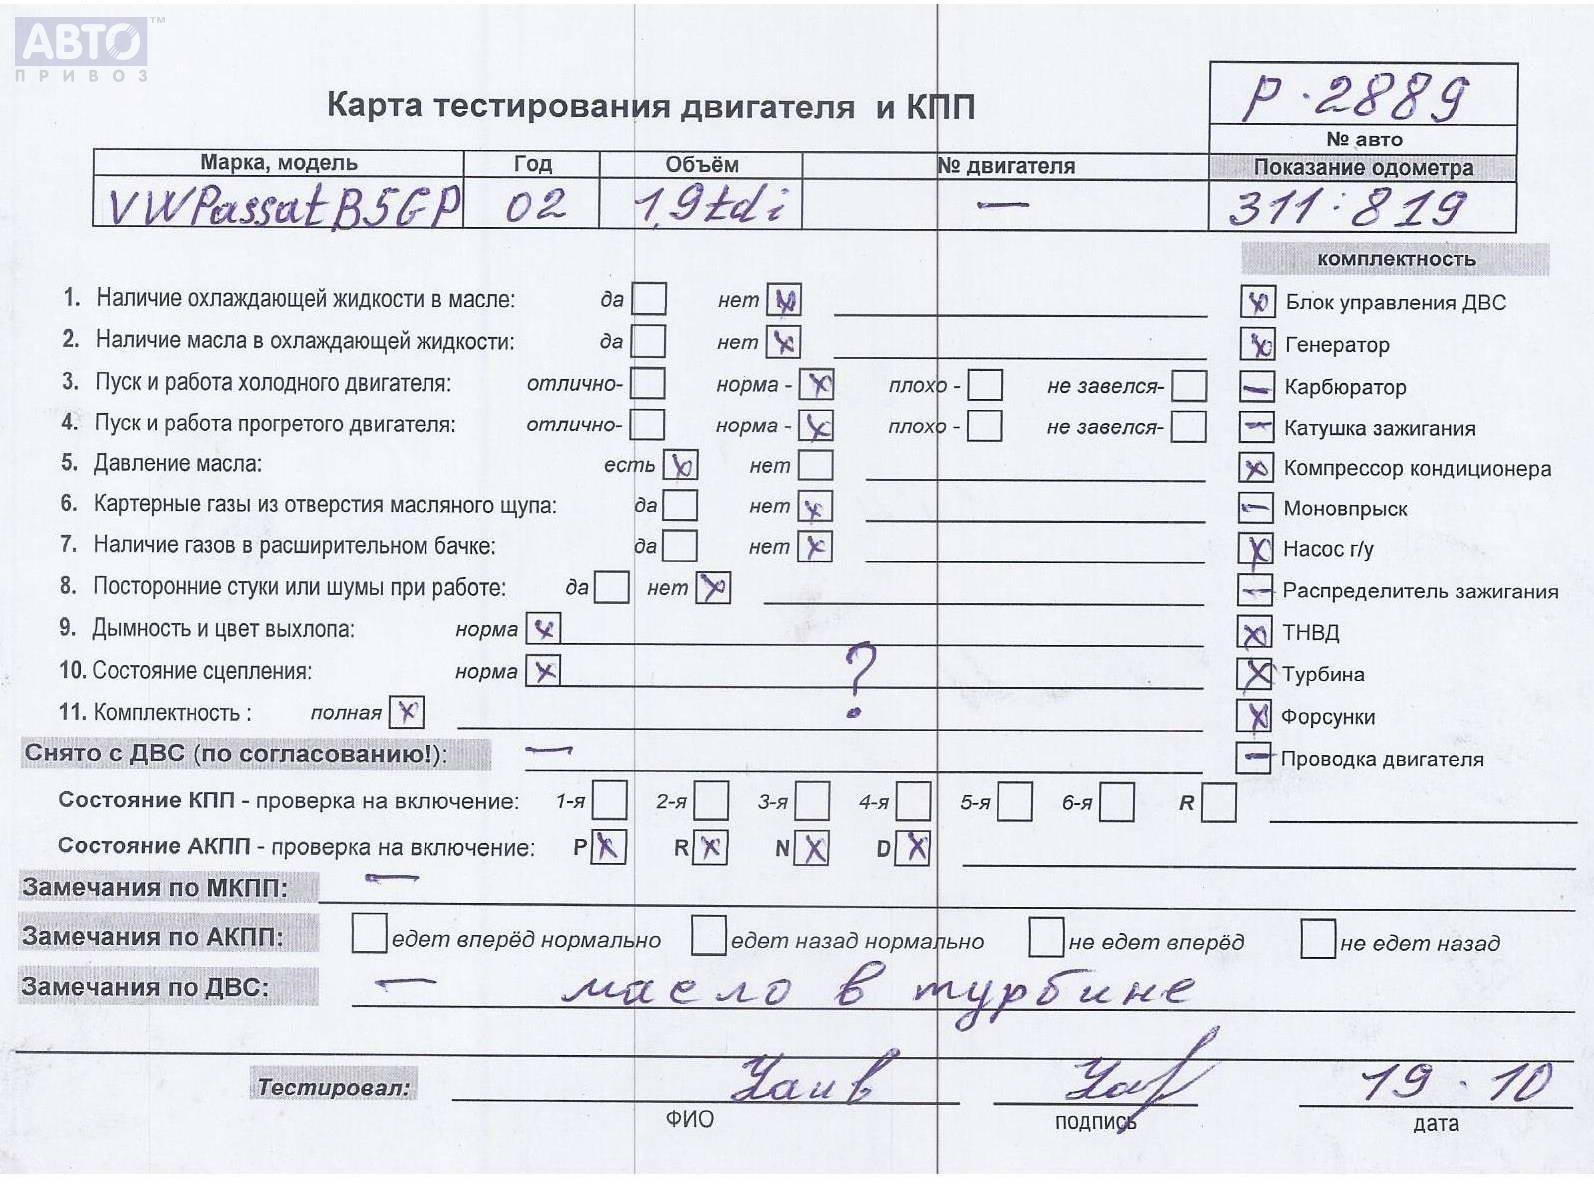 АВТО TM
ПРИВОЗ
Карта тестирования двигателя и КПП
Р·2889
№ авто
Марка, модель Год Объём № двигателя Показание одометра
VW Passat B5GP 02 1,9tdi — 311:819
комплектность
1. Наличие охлаждающей жидкости в масле: да нет x
x Блок управления ДВС
2. Наличие масла в охлаждающей жидкости: да нет x
x Генератор
3. Пуск и работа холодного двигателя: отлично- норма - x плохо - не завелся-
— Карбюратор
4. Пуск и работа прогретого двигателя: отлично- норма - x плохо - не завелся-
— Катушка зажигания
5. Давление масла: есть x нет
x Компрессор кондиционера
6. Картерные газы из отверстия масляного щупа: да нет x
— Моновпрыск
7. Наличие газов в расширительном бачке: да нет x
x Насос г/у
8. Посторонние стуки или шумы при работе: да нет x
— Распределитель зажигания
9. Дымность и цвет выхлопа: норма x
x ТНВД
10. Состояние сцепления: норма x ?
x Турбина
11. Комплектность : полная x
x Форсунки
Снято с ДВС (по согласованию!): —
— Проводка двигателя
Состояние КПП - проверка на включение: 1-я 2-я 3-я 4-я 5-я 6-я R
Состояние АКПП - проверка на включение: P x R x N x D x
Замечания по МКПП: —
Замечания по АКПП: едет вперёд нормально едет назад нормально не едет вперёд не едет назад
Замечания по ДВС: — масло в турбине
Тестировал: 19·10
ФИО подпись дата